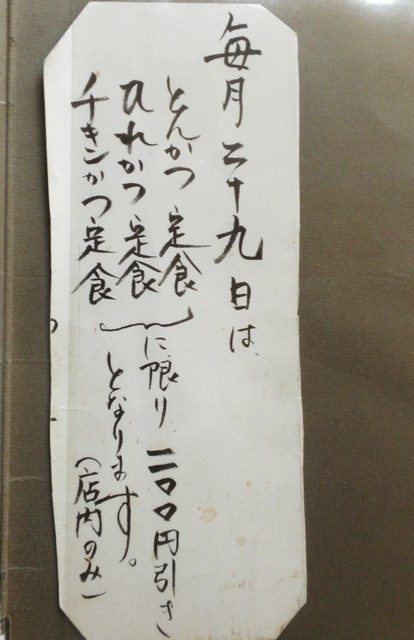 毎月二十九日は、
とんかつ定食
ひれかつ定食
チキンかつ定食
に限り二〇〇円引き
となります。
(店内のみ)